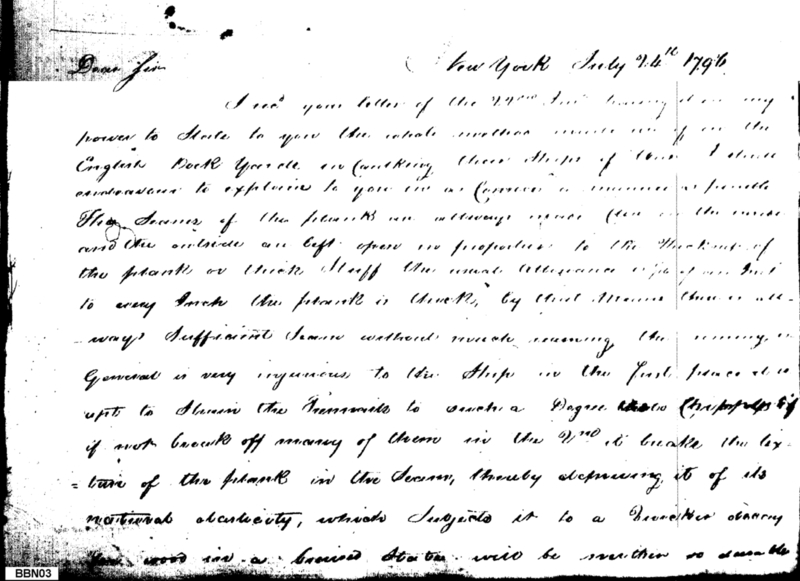 Dear Sir New York July 24th 1796
I recd your letter of the 22nd Inst having it in my
power to State to you the whole method made use of in the
English Dock Yards in Caulking their Ships of War I shall
endeavour to explain to you in as Concise a manner as possible
The Seams of the planks are allways made Close on the inside
and the outside are left open in proportion to the thickness of
the plank or thick Stuff the usual allowance is of an Inch
to every Inch the plank is thick, by that Means there is all-
ways Sufficient Seam without much reeming, the reeming in
General is very injurious to the Ship in the first place it is
apt to Strain the Treenails to such a Degree
if not break off many of them in the 2nd it breaks the tex-
=ture of the plank in the Seam, thereby depriving it of its
natural elasticity, which Subjects it to a Quicker decay
wood in a bruised State will be neither so durable
BBN03